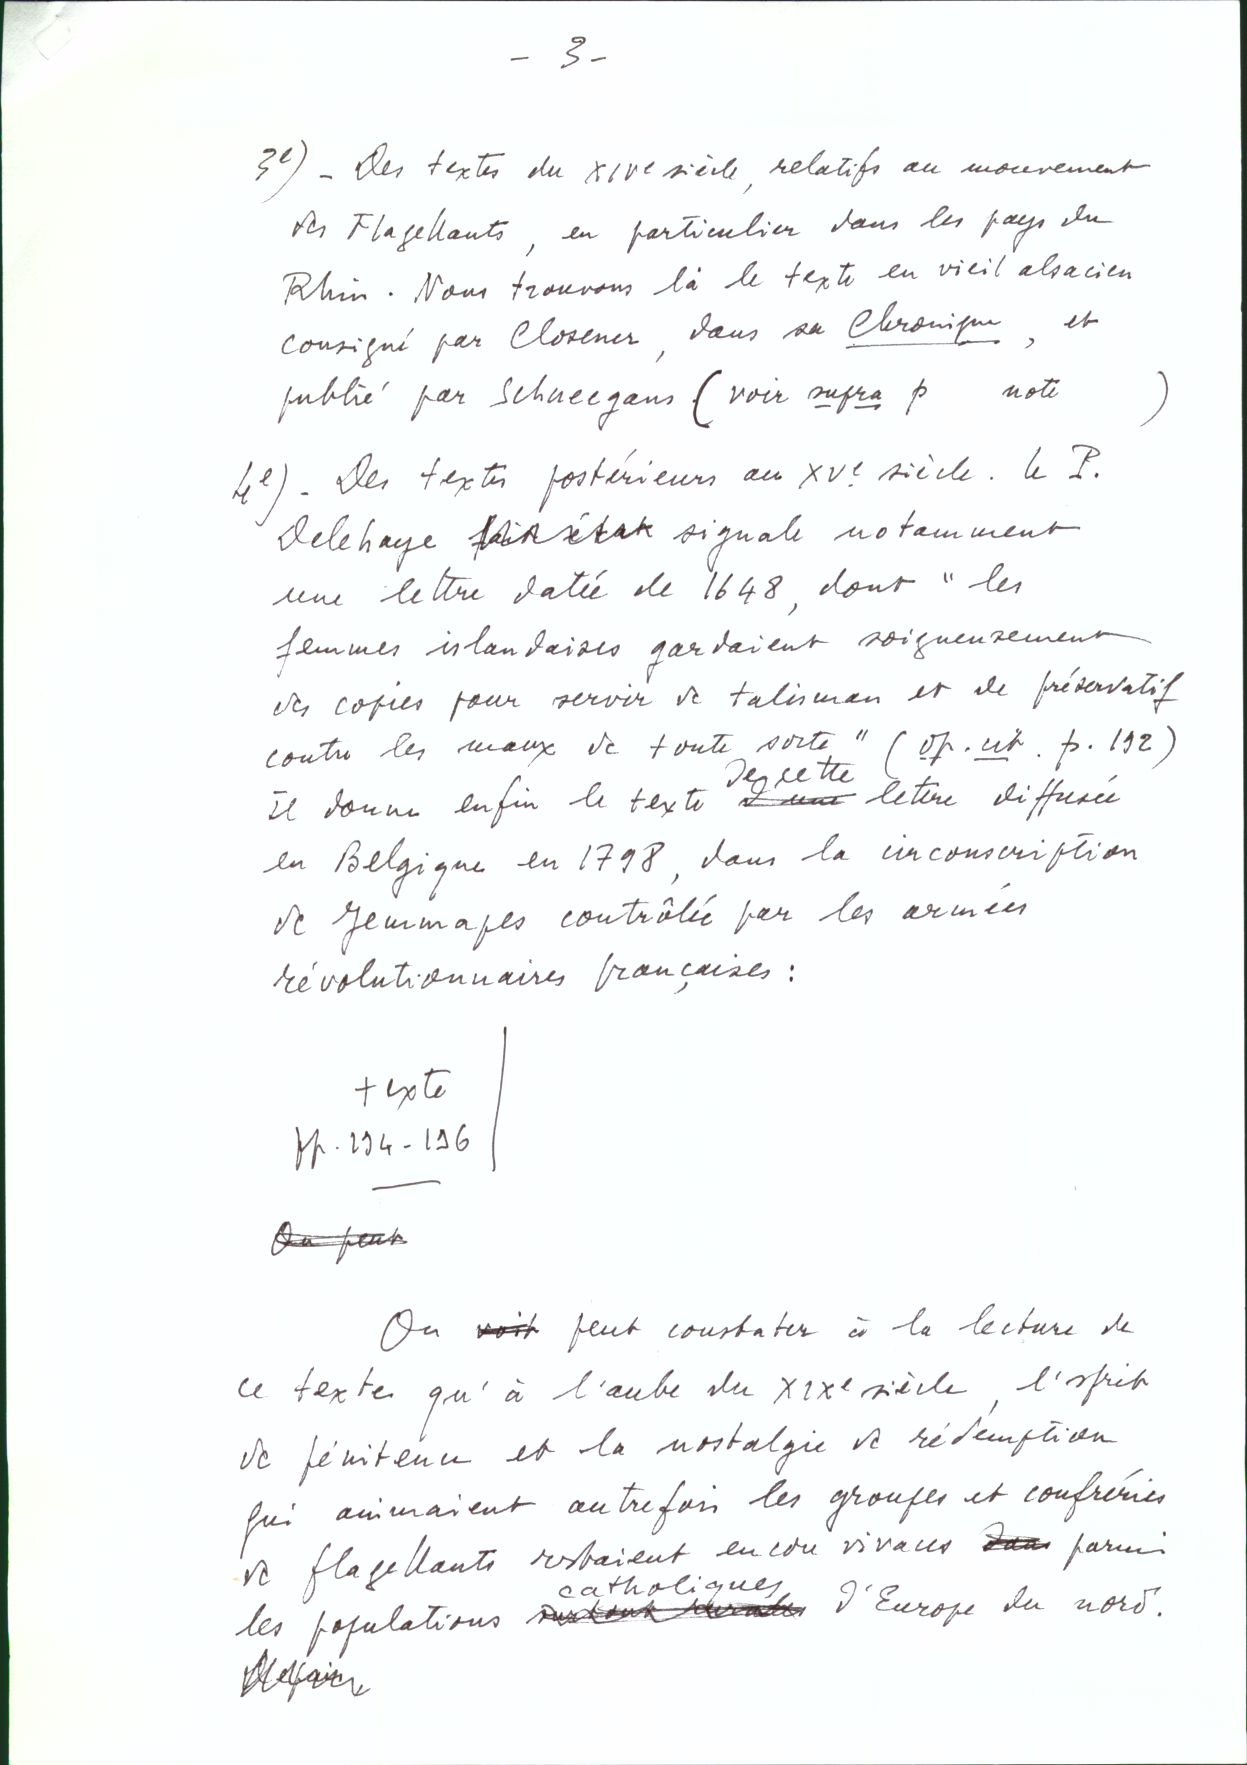 - 3 -
3e) - Des textes du XIVe siècle, relatifs au mouvement
des Flagellants, en particulier dans les pays du
Rhin. Nous trouvons là le texte en vieil alsacien
consigné par Closener, dans sa Chronique, et
publié par Schneegans (voir supra p note )
4e) - Des textes postérieurs au XVe siècle. Le P.
Delehaye fait état signale notamment
une lettre datée de 1648, dont "les
femmes islandaises gardaient soigneusement
des copies pour servir de talisman et de préservatif
contre les maux de toute sorte" (op. cit. p. 192)
Il donne enfin le texte d'une de cette lettre diffusée
en Belgique en 1798, dans la circonscription
de Jemmapes contrôlée par les armées
révolutionnaires françaises :
texte
pp. 194-196
On peut
On voit peut constater à la lecture de
ce texte qu'à l'aube du XIXe siècle, l'esprit
de pénitence et la nostalgie de rédemption
qui animaient autrefois les groupes et confréries
de flagellants restaient encore vivaces dans parmi
les populations surtout rurales catholiques d'Europe du nord.